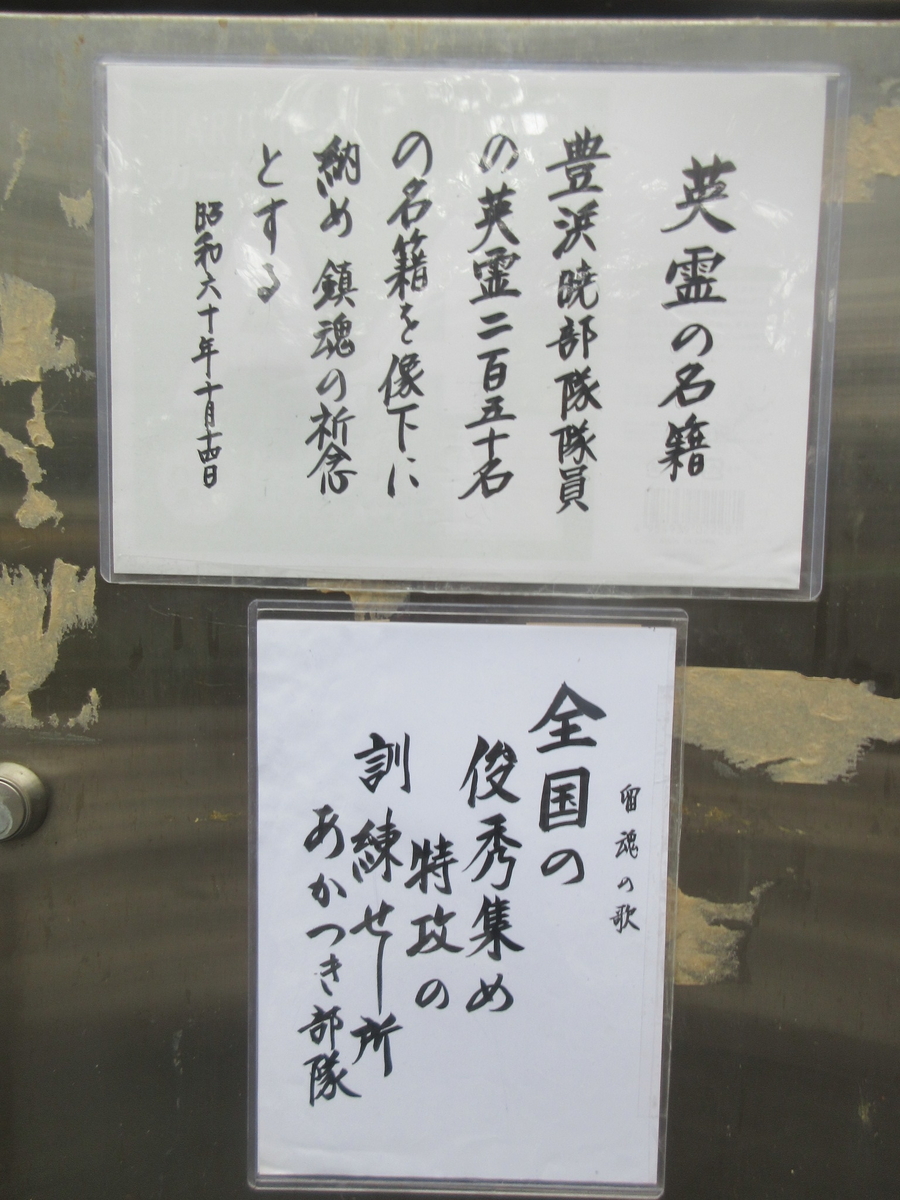 英霊の名籍
豊浜暁部隊隊員
の英霊二百五十名
の名籍を像下に
納め鎮魂の祈念
とする
昭和六十年十月十四日
留魂の歌
全国の
俊秀集め
特攻の
訓練せし所
あかつき部隊